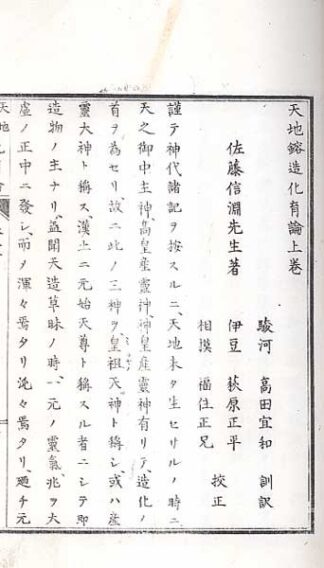 天地鎔造化育論上巻
佐藤信淵先生著
駿河 高田宜和 訓訳
伊豆 萩原正平
相摸 福住正兄
校正
謹テ神代諸記ヲ按スルニ、天地未タ生セサルノ時ニ
天之御中主神、高皇産霊神、神皇産霊神有リテ、造化ノ
首ヲ為セリ故ニ此ノ三神ヲ、皇祖天神ト称シ、或ハ産
霊大神ト称ス、漢土ニ元始天尊ト称スル者ニシテ即
造物ノ主ナリ、蓋聞天造草昧ノ時、一元ノ霊気兆ヲ大
虚ノ正中ニ発シ、而ヲ渾々焉タリ沌々焉タリ、廼チ元